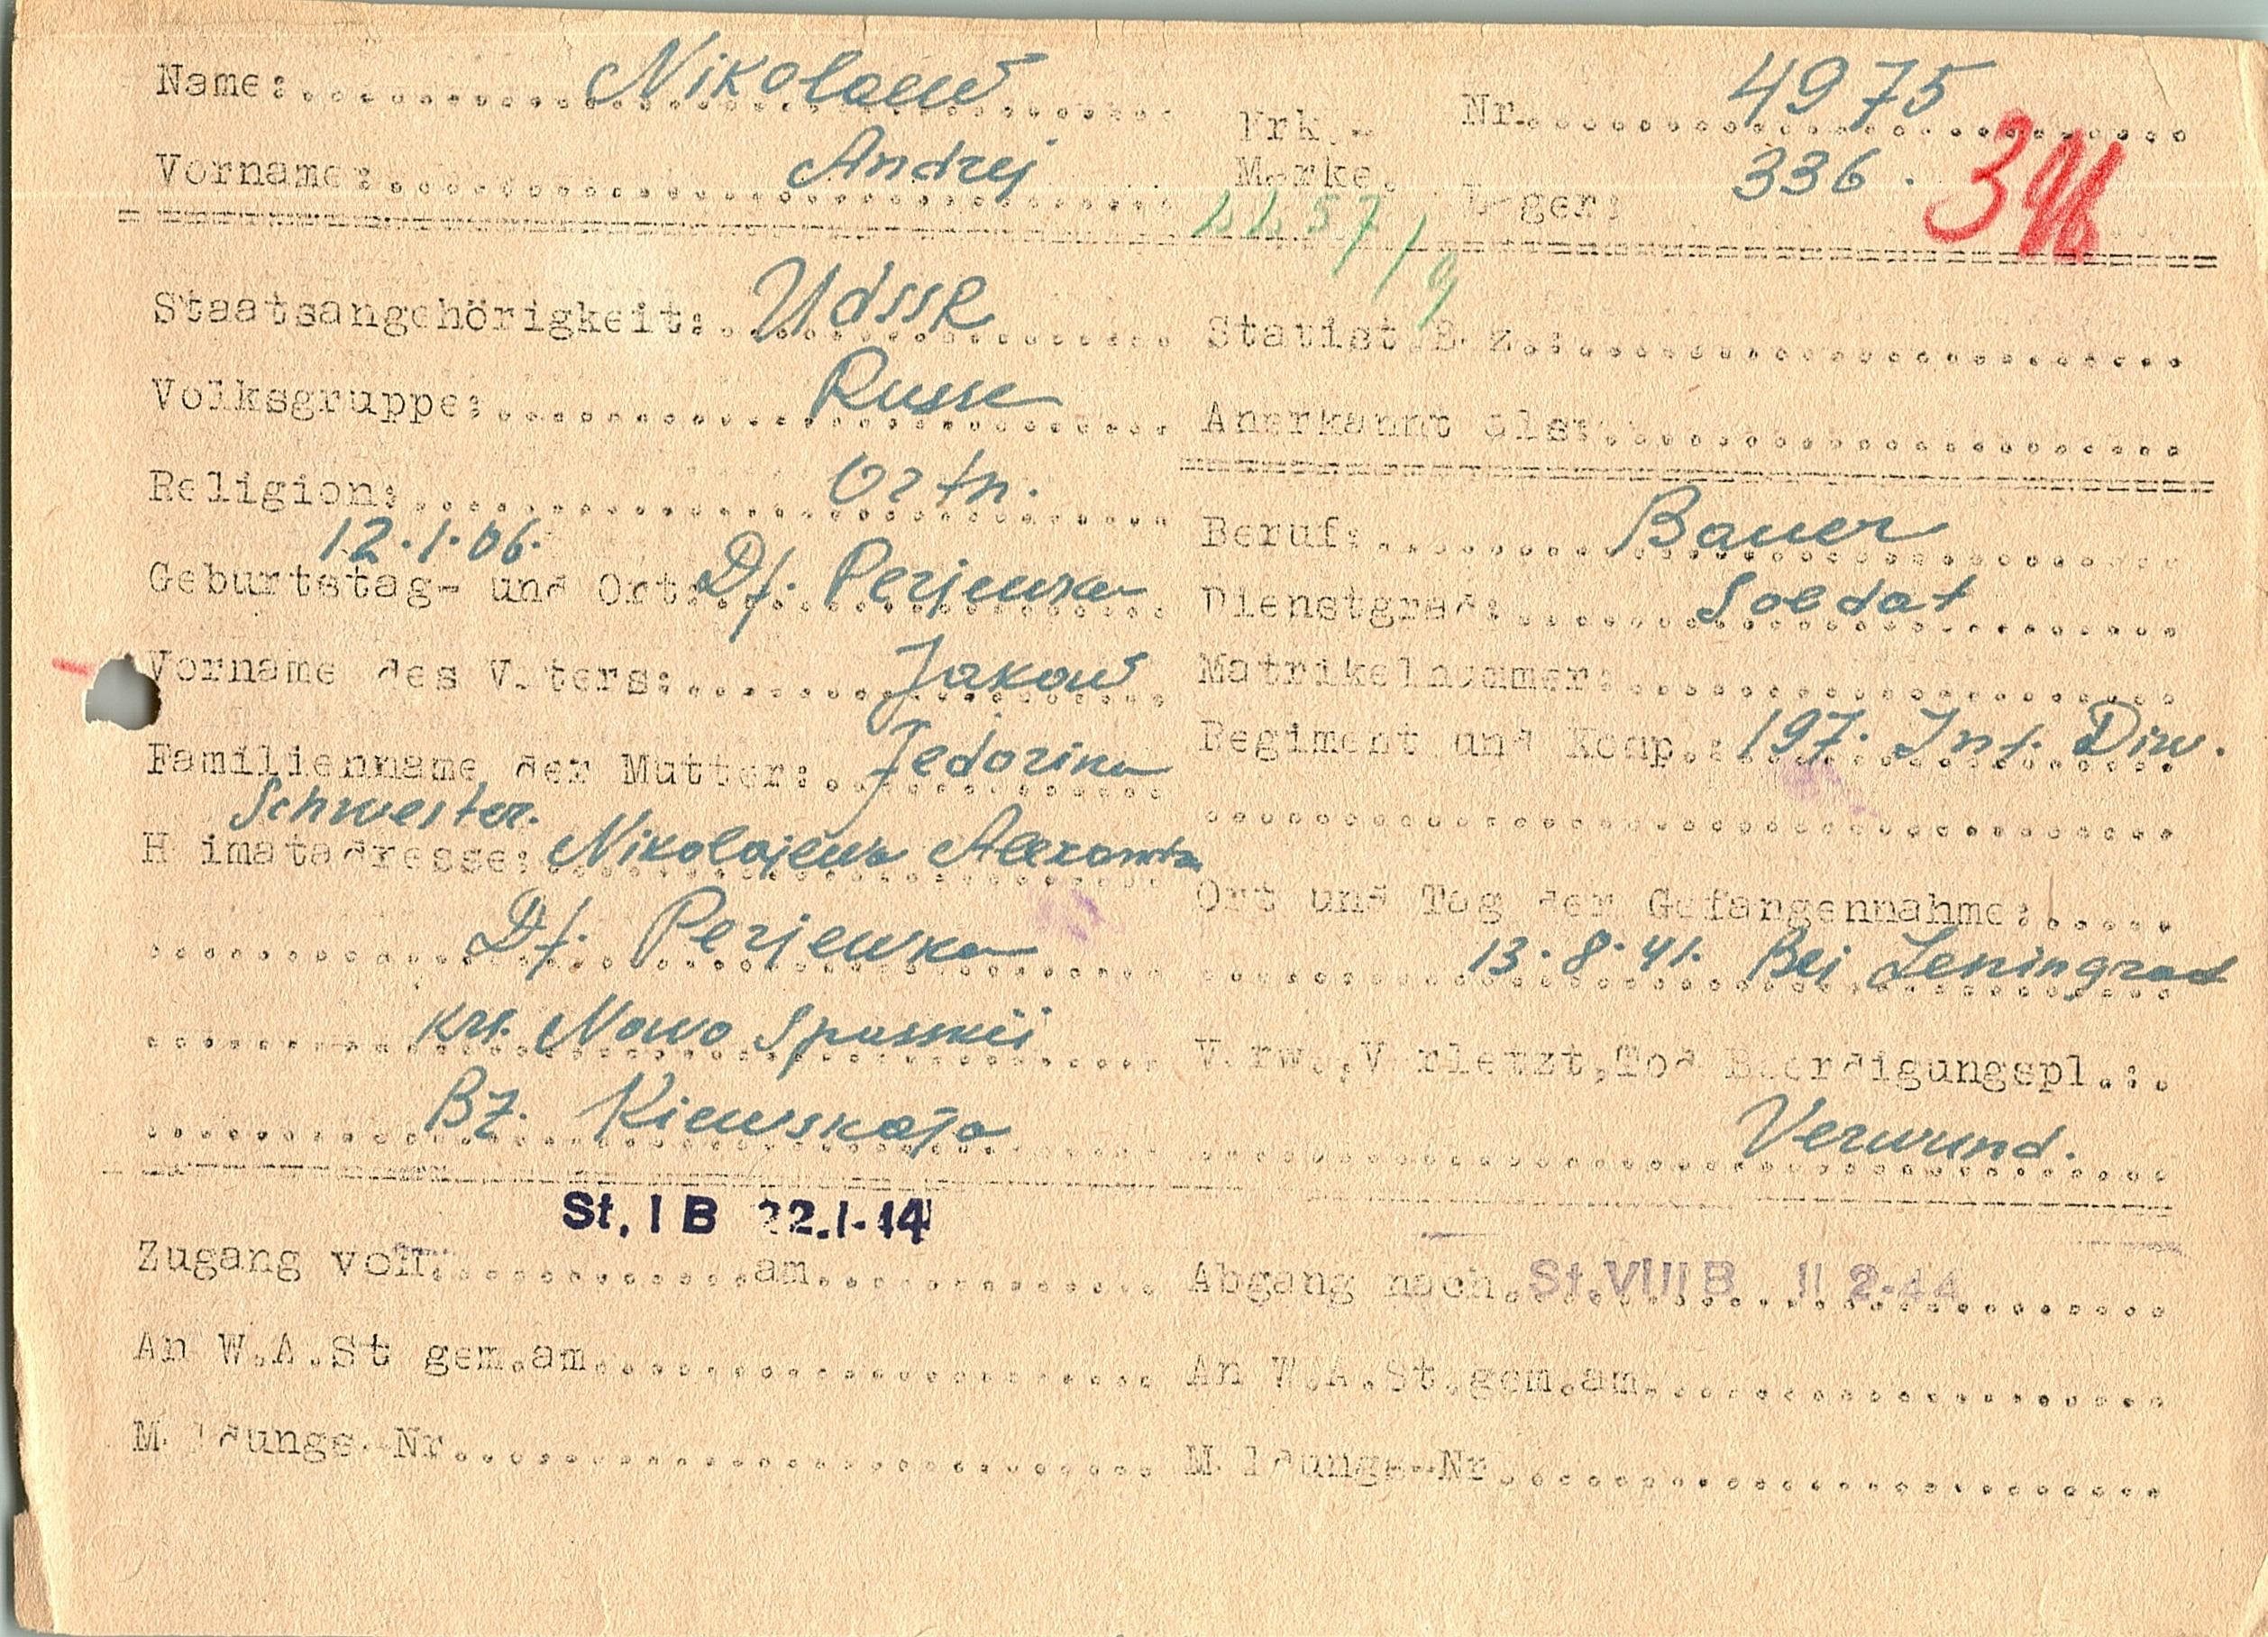 Name: Nikolaew
Vorname: Andrej
Erk.-
Marke.
Nr. 4975
Lager: 336.
Staatsangehörigkeit: UdSSR
Volksgruppe: Russe
Religion: Ortn.
12.1.06.
Geburtstag- und Ort: Df. Perjewka
Vorname des Vaters: Jakow
Familienname der Mutter: Fedorina
Schwester.
Heimatadresse: Nikolajewa
Df. Perjewka
Krs. Nowo Spasskii
Bz. Kiewskaja
Statist.Bez.:
Anerkannt als:
Beruf: Bauer
Dienstgrad: Soldat
Matrikelnummer:
Regiment und Komp.: 197. Inf. Diw.
Ort und Tag der Gefangennahme:
13.8.41. Bei Leningrad
Verw.,Verletzt,Tod Beerdigungspl.:
Verwund.
St. I B 22.1.44
Zugang von am
Abgang nach St. VIII B 11 2-44
An W.A.St gem.am
An W.A.St.gem.am.
Meldungs-Nr
Meldungs-Nr